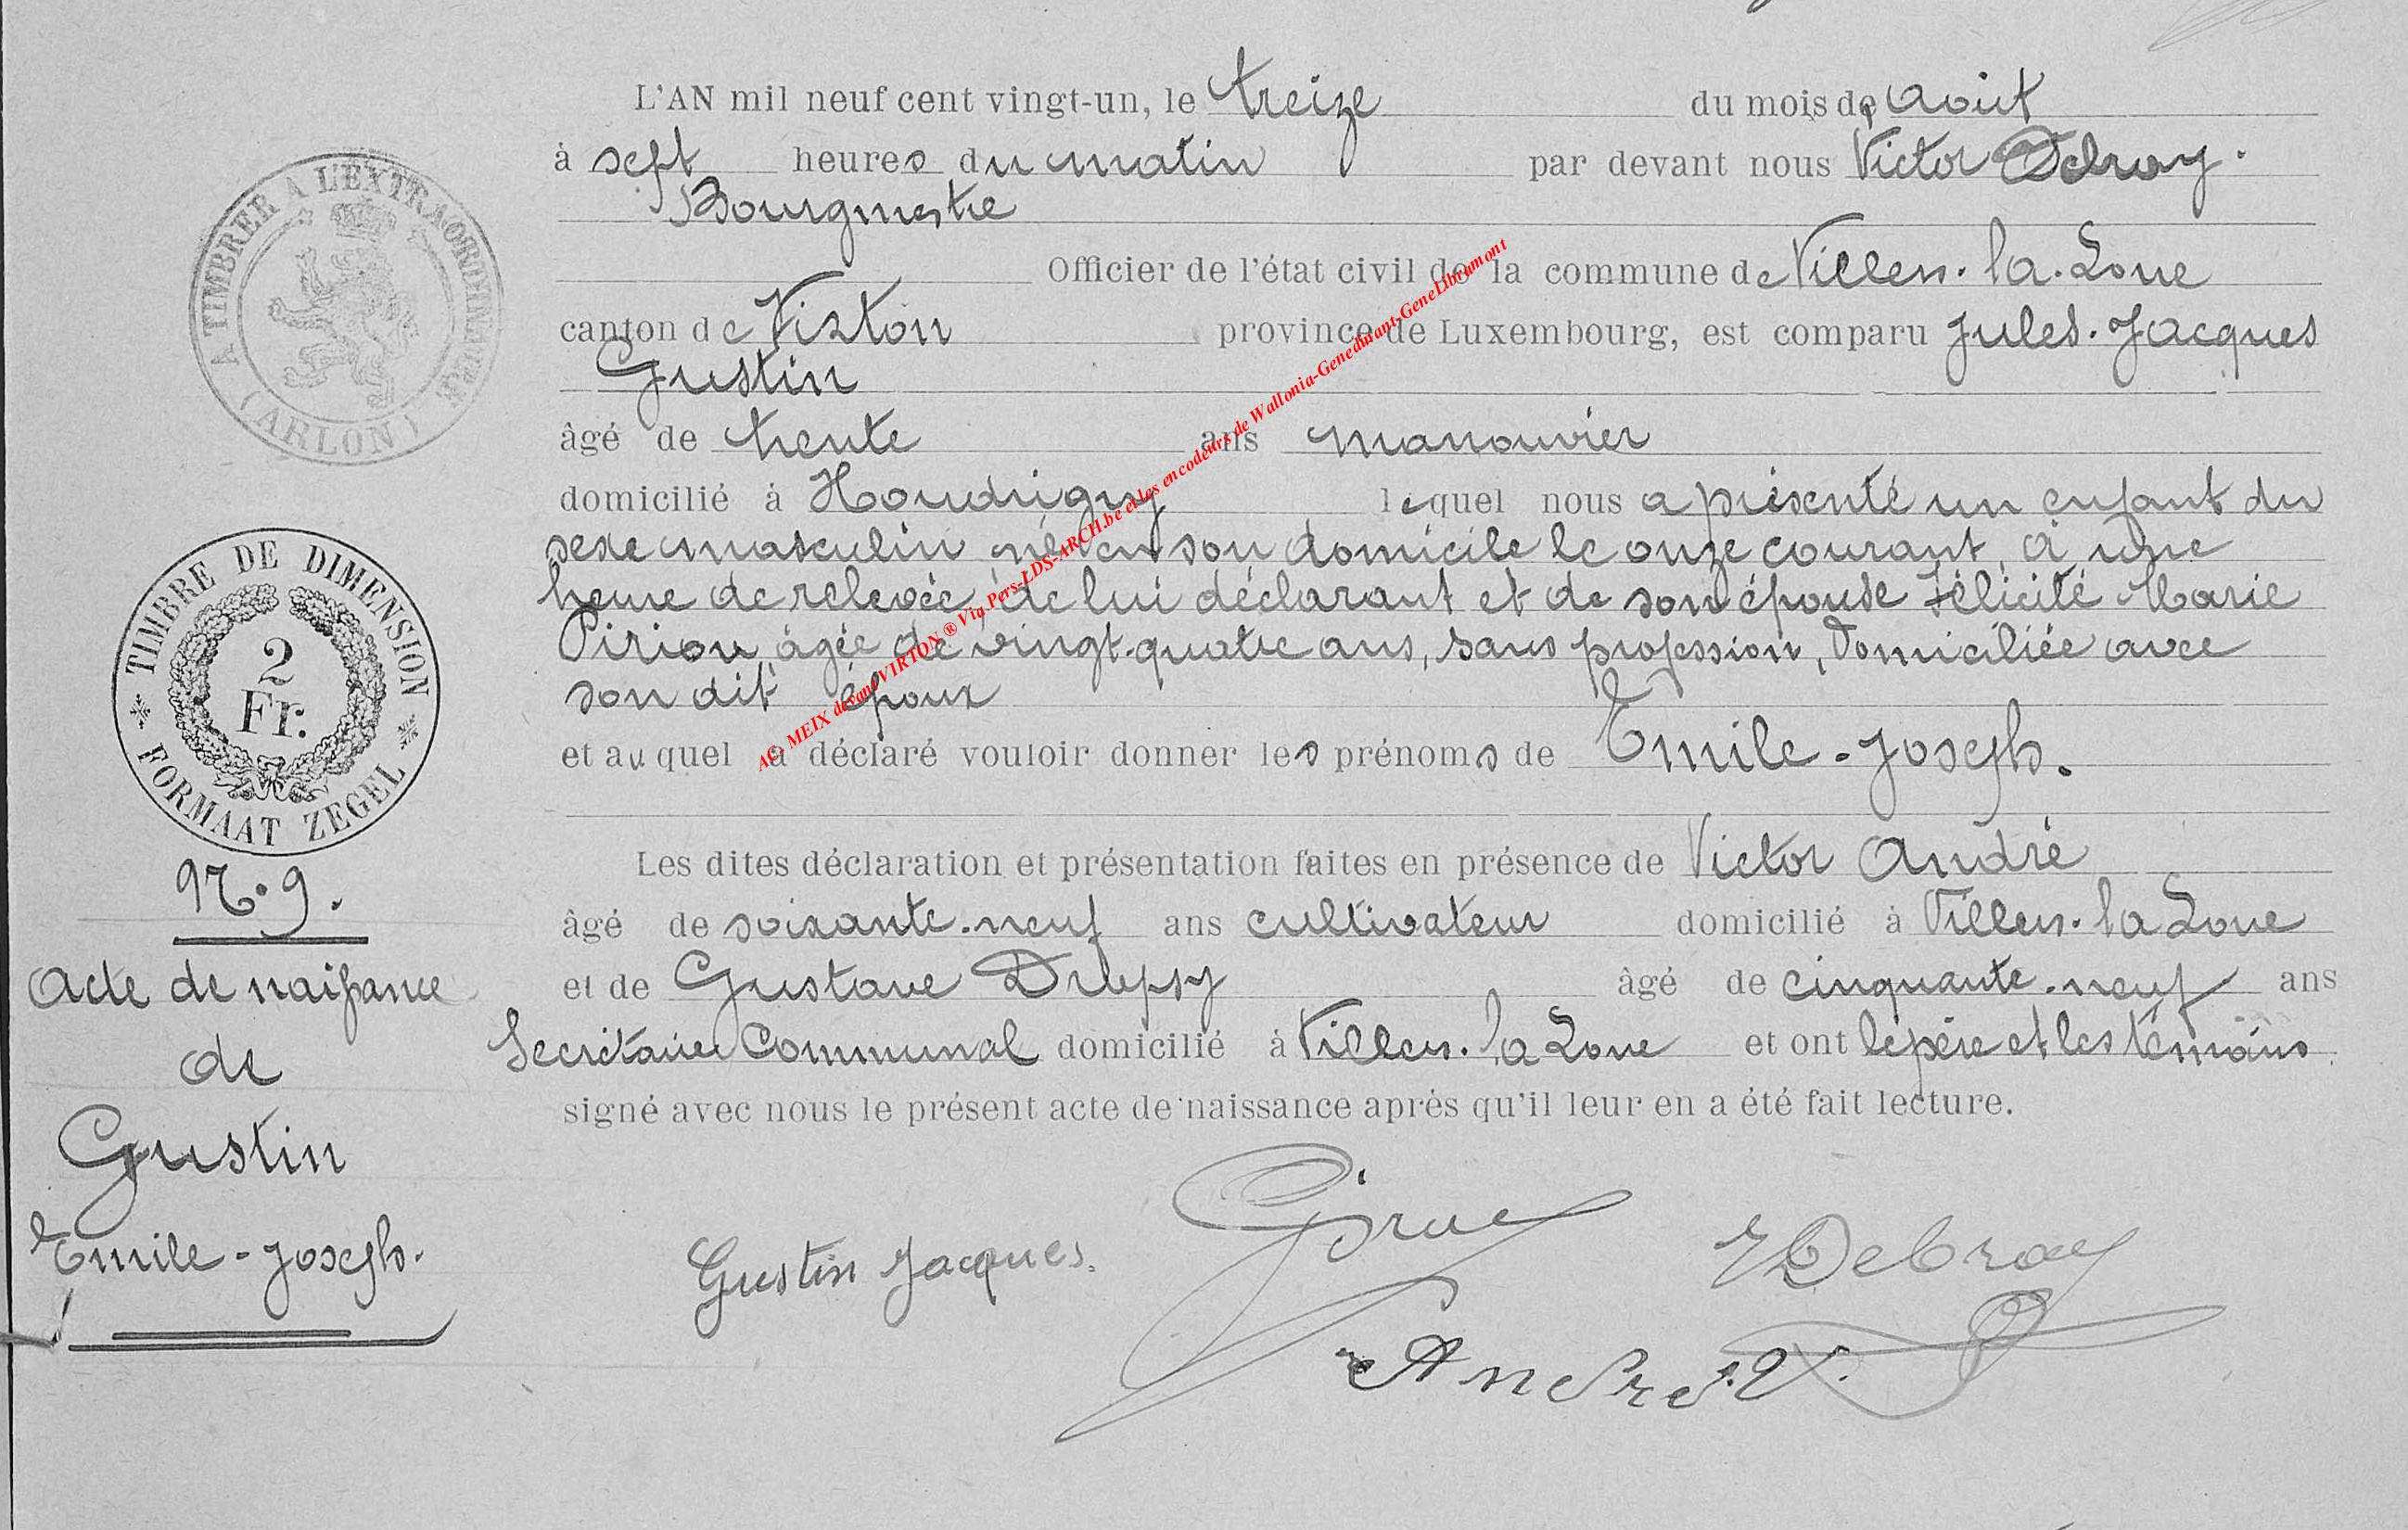 L'AN mil neuf cent vingt-un, le treize du mois de août
à sept heures du matin par devant nous Victor Debroy.
Bourgmestre
Officier de l'état civil de la commune de Villers-la-Loue
canton de Virton province de Luxembourg, est comparu Jules-Jacques
Gustin
âgé de trente ans manouvrier
domicilié à Houdrigny lequel nous a présenté un enfant du
sexe masculin, né en son domicile le onze courant, à une
heure de relevée, de lui déclarant et de son épouse Félicité Marie
Pirion, âgée de vingt-quatre ans, sans profession, domiciliée avec
son dit époux
et auquel a déclaré vouloir donner les prénoms de Emile-Joseph.
Les dites déclaration et présentation faites en présence de Victor André
âgé de soixante-neuf ans cultivateur domicilié à Villers-la Loue
et de Gustave âgé de cinquante-neuf ans
Secrétaire Communal domicilié à Villers-la Loue et ont le père et les témoins
signé avec nous le présent acte de naissance après qu'il leur en a été fait lecture.
Gustin Jacques.
VDebroy
André. V.
A TIMBRER A L'EXTRAORDINAIRE
(ARLON)
TIMBRE DE DIMENSION
2
Fr.
FORMAAT ZEGEL
N°. 9.
Acte de naissance
de
Gustin
Emile-Joseph.
AC. MEIX devant VIRTON ® Via Pers-LDS-ARCH.be et les encodeurs de Wallonia-Genedinant-GeneLibramont